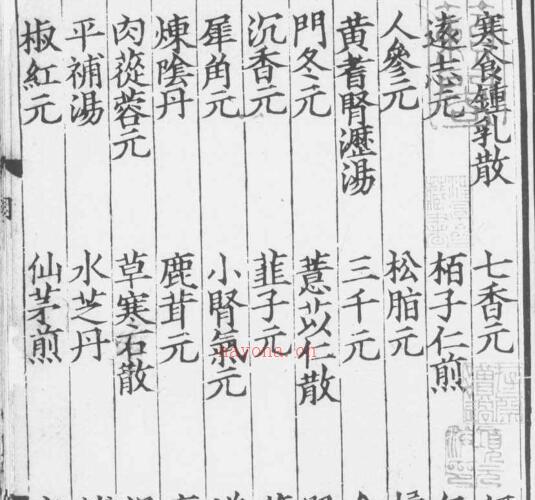 寒食鍾乳散 七香元
遠志元 栢子仁煎
人參元 松脂元
黃耆腎瀝湯 三千元
門冬元 薏苡仁散
沉香元 韮子元
犀角元 小腎氣元
煉陰丹 鹿茸元
肉蓯蓉元 草寒石散
平補湯 水芝丹
椒紅元 仙茅煎
nayona.cn